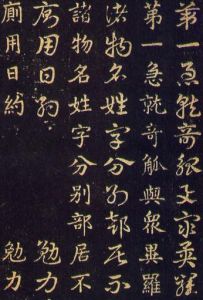 第一急就奇觚與衆異羅
第一急就奇觚與衆異羅
諸物名姓字分別部居不
諸物名姓字分別部居不
廁用日約 勉力
廁用日約 勉力